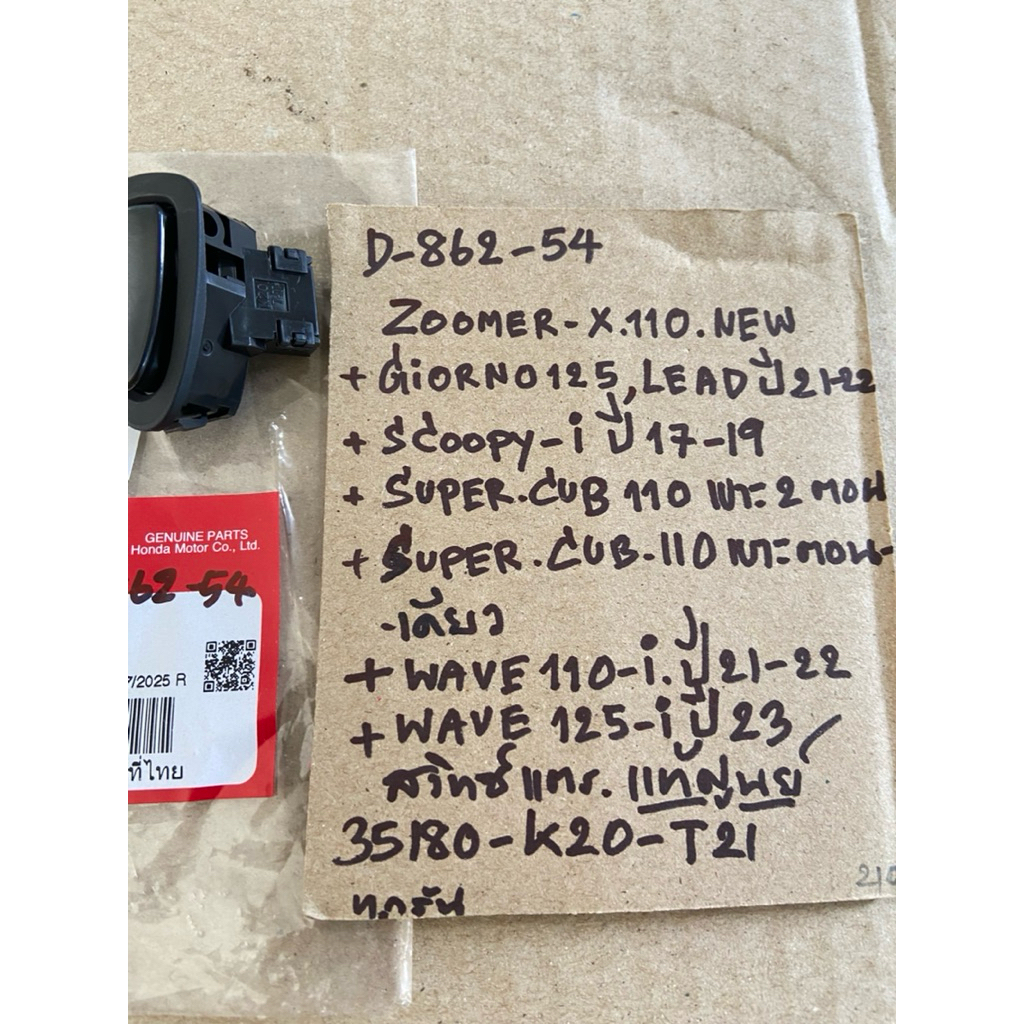 D-862-54
ZOOMER-X.110.NEW
+ GiORNO125,LEAD ปี21-22
+ SCOOPY-i ปี 17-19
+ SUPER.CUB 110 เบาะ 2 ตอน
+ SUPER.CUB.110 เบาะตอน-
-เดียว
+ WAVE 110-i.ปี21-22
+ WAVE 125-i ปี 23
สวิทซ์แตร.แท้ศูนย์
35180-K20-T21
ทุกรุ่น
210
GENUINE PARTS
Honda Motor Co., Ltd.
62-54
7/2025 R
ที่ไทย